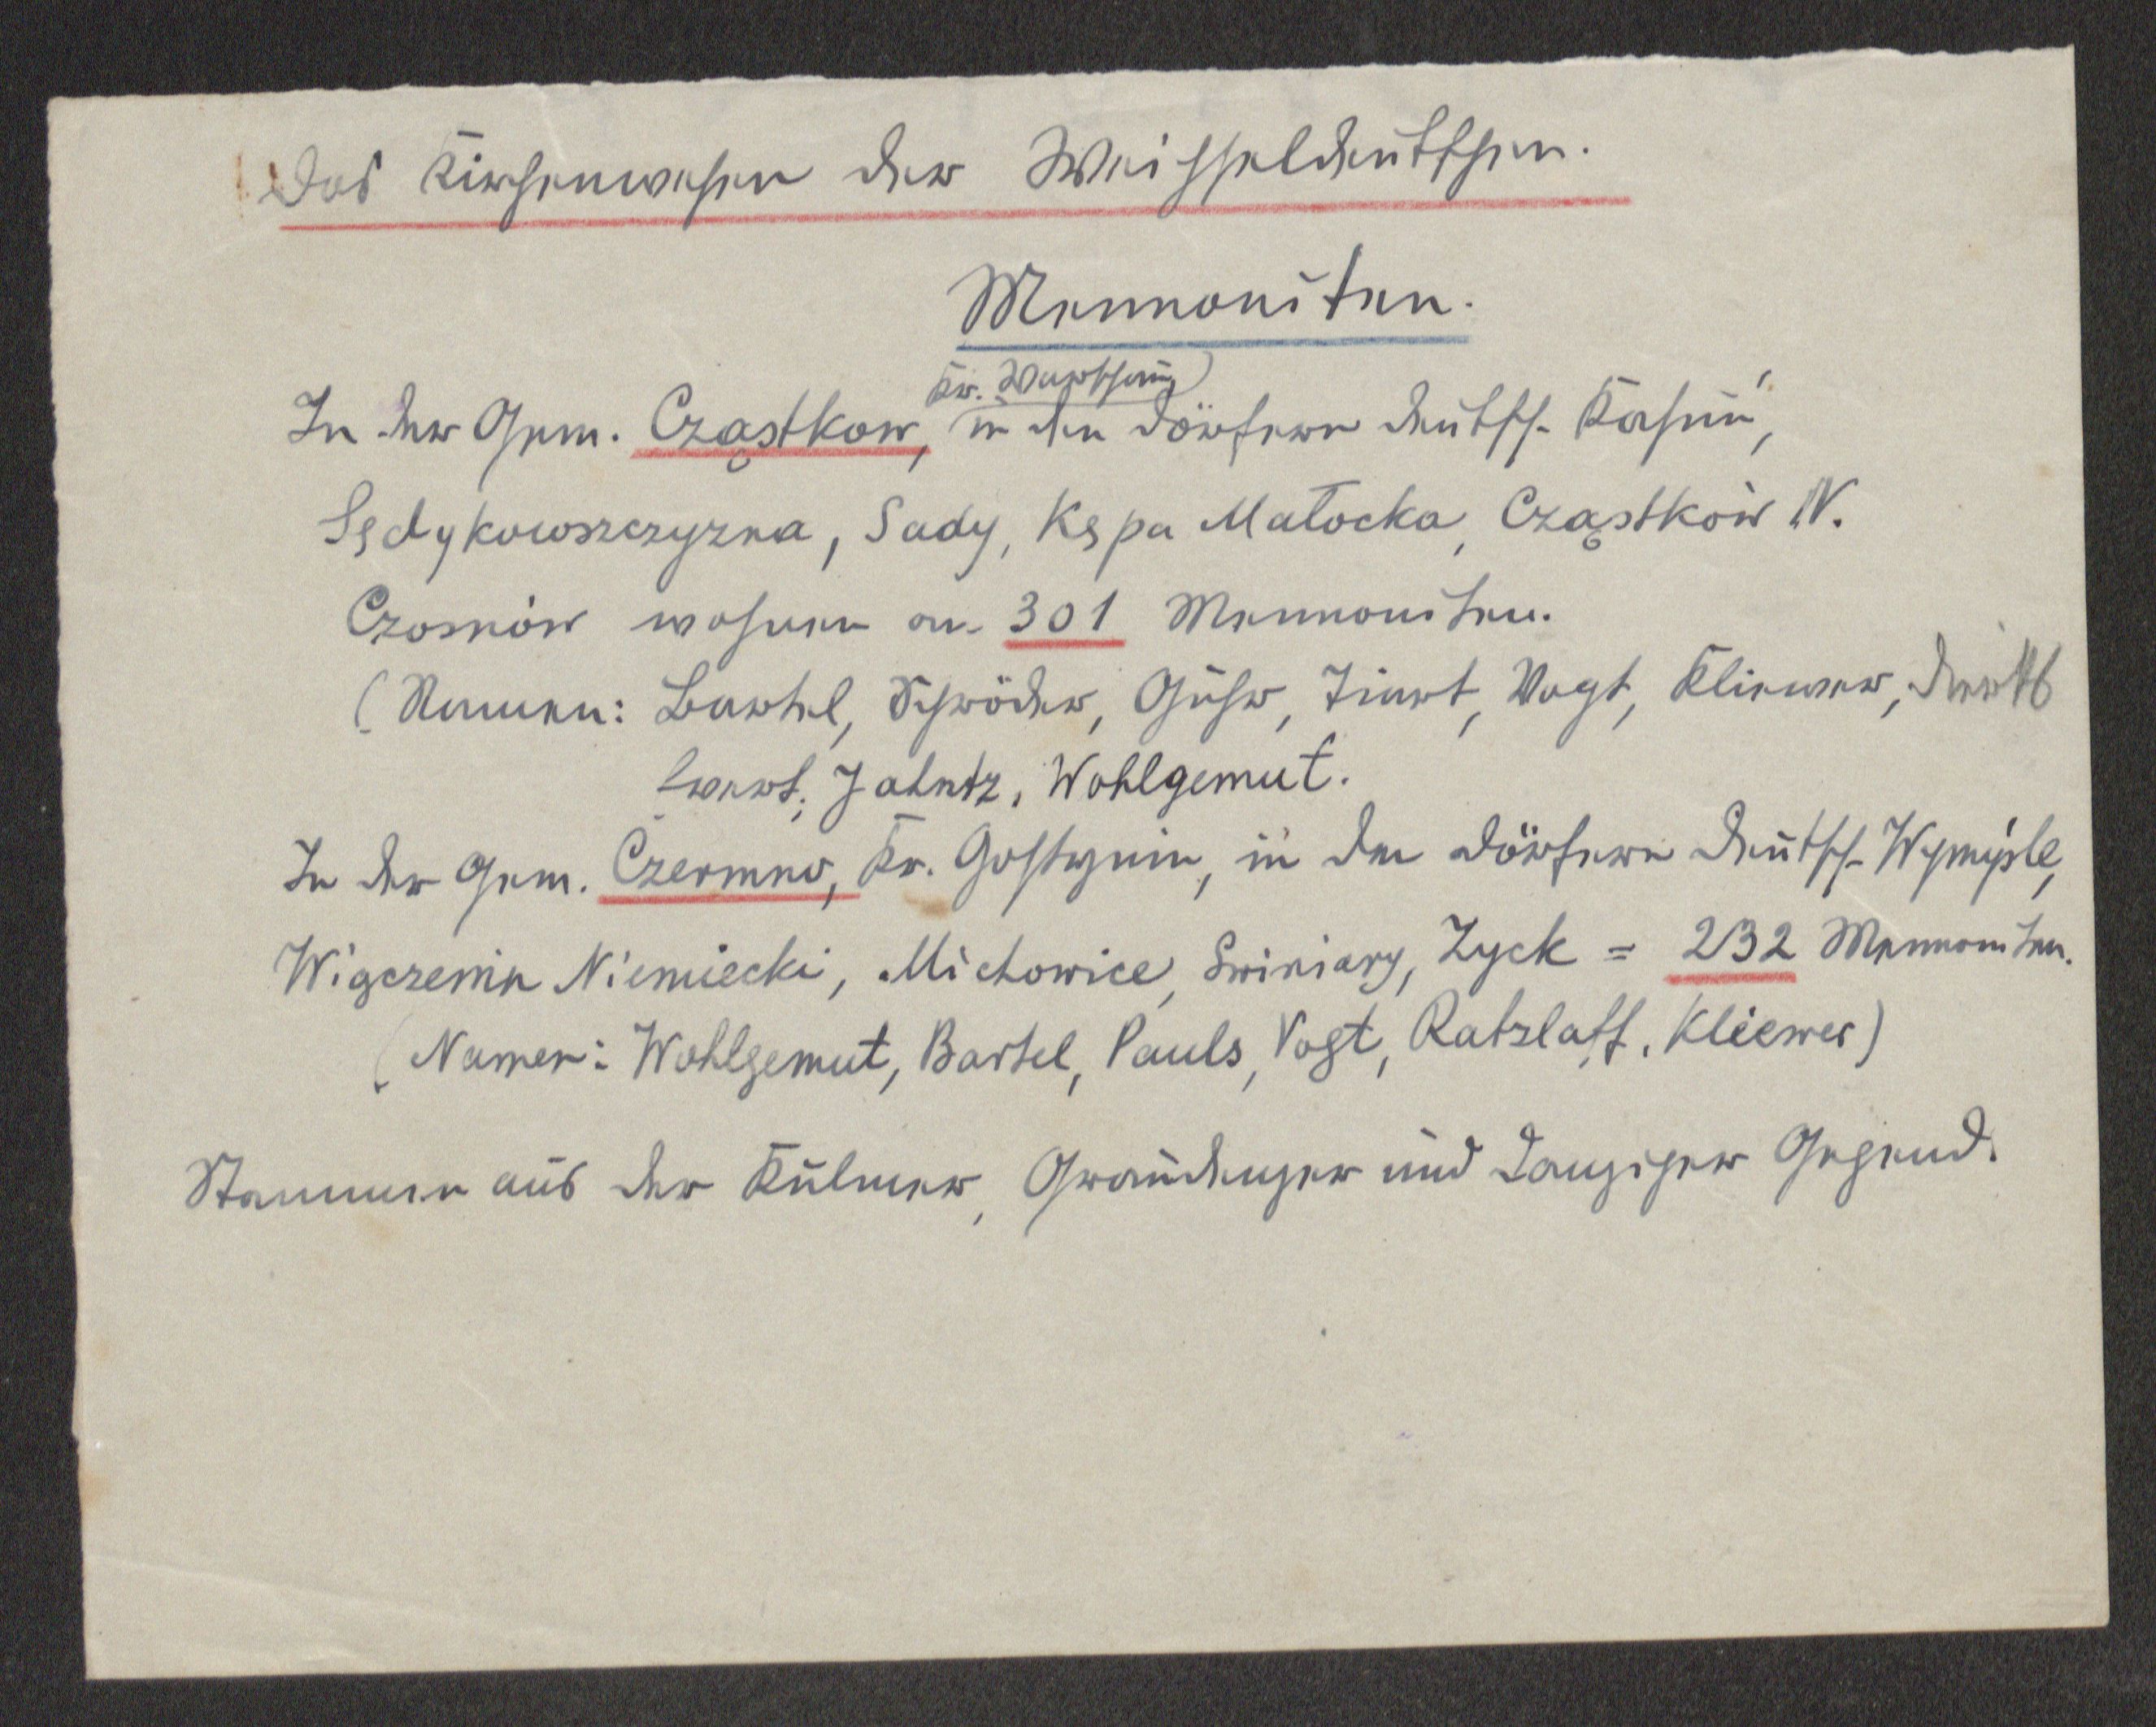 Das Kirchenwesen der Weichseldeutschen.
Mennoniten.
Kr. Warschau)
In der Gem. Cząstkow, in den Dörfern Deutsch-Kasuń,
Sędykowszczyzna, Sady, Kępa Małocka, Cząstków N.
Czosnów wohnen an 301 Mennoniten.
(Namen: Bartel, Schröder, Guhr, Ziert, Vogt, Kliewer,
Ewert, Jahntz, Wohlgemut.
In der Gem. Czermno, Kr. Gostynin, in den Dörfern Deutsch-Wymyśle,
Wiączemin Niemiecki, Michowice, Swiniary, Zyck = 232 Mennoniten.
(Namen: Wohlgemut, Bartel, Pauls, Vogt, Ratzlaff, Kliewer)
Stammen aus der Kulmer, Graudenzer und Danziger Gegend.